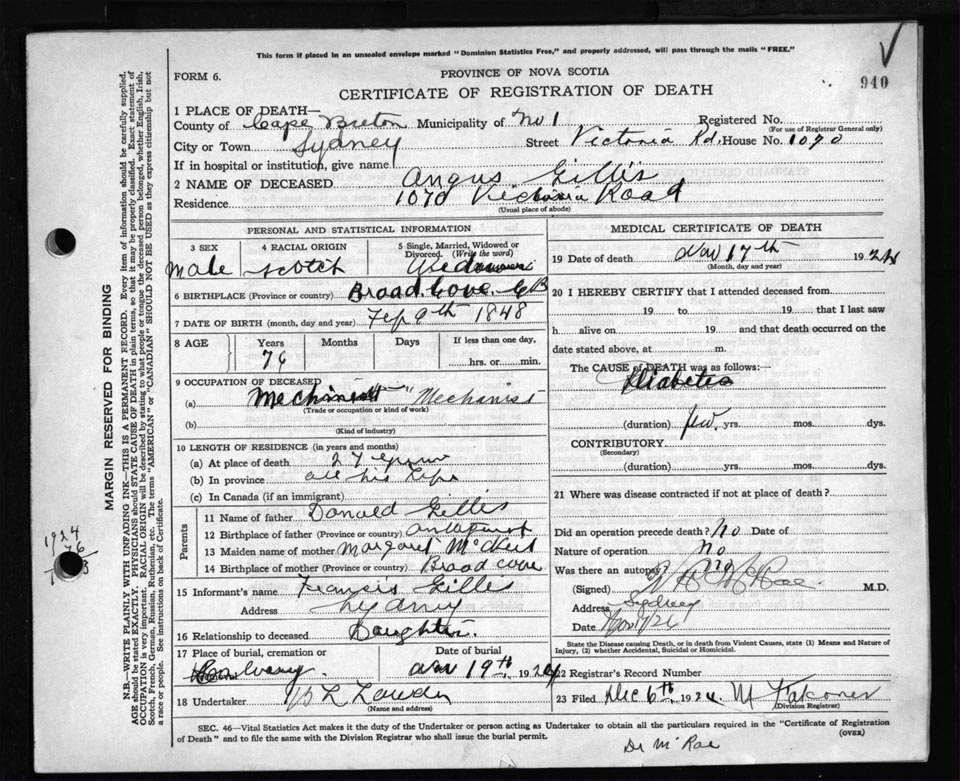 This form if placed in an unsealed envelope marked "Dominion Statistics Free," and properly addressed, will pass through the mails "FREE."
FORM 6.
PROVINCE OF NOVA SCOTIA
940
CERTIFICATE OF REGISTRATION OF DEATH
1 PLACE OF DEATH—
County of Cape Breton Municipality of No 1 Registered No.
(For use of Registrar General only)
City or Town Sydney Street Victoria Rd, House No. 1070
If in hospital or institution, give name
2 NAME OF DECEASED Angus Gillis
Residence 1070 Victoria Road
(Usual place of abode)
PERSONAL AND STATISTICAL INFORMATION
3 SEX 4 RACIAL ORIGIN 5 Single, Married, Widowed or Divorced. (Write the word)
male Scotch Widower
6 BIRTHPLACE (Province or country) Broad Cove. CB
7 DATE OF BIRTH (month, day and year) Feb 9th 1848
8 AGE Years Months Days If less than one day,
76 hrs. or min.
9 OCCUPATION OF DECEASED
(a) Mechinist "Mechinist
(Trade or occupation or kind of work)
(b)
(Kind of industry)
10 LENGTH OF RESIDENCE (in years and months)
(a) At place of death 27 years
(b) In province all his life
(c) In Canada (if an immigrant)
Parents
11 Name of father Donald Gillis
12 Birthplace of father (Province or country)
13 Maiden name of mother Margaret
14 Birthplace of mother (Province or country) Broad cove
15 Informant's name Francis Gillis
Address Sydney
16 Relationship to deceased Daughter.
17 Place of burial, cremation or Date of burial
19th, 1924
18 Undertaker
(Name and address)
MEDICAL CERTIFICATE OF DEATH
19 Date of death Nov 17th 1924
(Month, day and year)
20 I HEREBY CERTIFY that I attended deceased from
19 to 19 that I last saw
h alive on 19 and that death occurred on the
date stated above, at m.
The CAUSE of DEATH was as follows:—
Diabetes
(duration) few yrs. mos. dys.
CONTRIBUTORY
(Secondary)
(duration) yrs. mos. dys.
21 Where was disease contracted if not at place of death?
Did an operation precede death? No Date of
Nature of operation no
Was there an autopsy? no
(Signed) M.D.
Address Sydney
Date
State the Disease causing Death, or in death from Violent Causes, state (1) Means and Nature of Injury, (2) whether Accidental, Suicidal or Homicidal.
22 Registrar's Record Number
23 Filed Dec 6th, 1924. M Falconer
(Division Registrar)
SEC. 46—Vital Statistics Act makes it the duty of the Undertaker or person acting as Undertaker to obtain all the particulars required in the "Certificate of Registration
of Death" and to file the same with the Division Registrar who shall issue the burial permit.
(OVER)
Dr McRae
MARGIN RESERVED FOR BINDING
N.B.—WRITE PLAINLY WITH UNFADING INK—THIS IS A PERMANENT RECORD. Every item of information should be carefully supplied.
AGE should be stated EXACTLY. PHYSICIANS should STATE CAUSE OF DEATH in plain terms, so that it may be properly classified. Exact statement of
OCCUPATION is very important. RACIAL ORIGIN will be described by stating to what people or tongue the deceased person belonged, whether English, Irish,
Scotch, French, German, Russian, Ruthenian, etc. The terms "AMERICAN" or "CANADIAN" SHOULD NOT BE USED as they express citizenship but not
a race or people. See instructions on back of Certificate.
1924
76